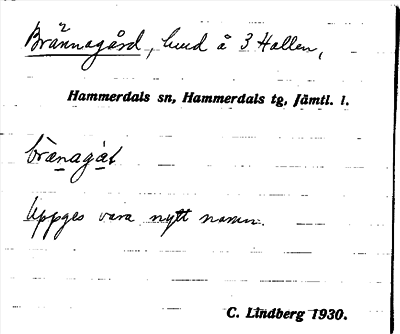 Brännagård, hmd å 3 Hallen,
Hammerdals sn, Hammerdals tg, Jämtl. l.
brænagå̀t
Uppges vara nytt namn.
C. Lindberg 1930.